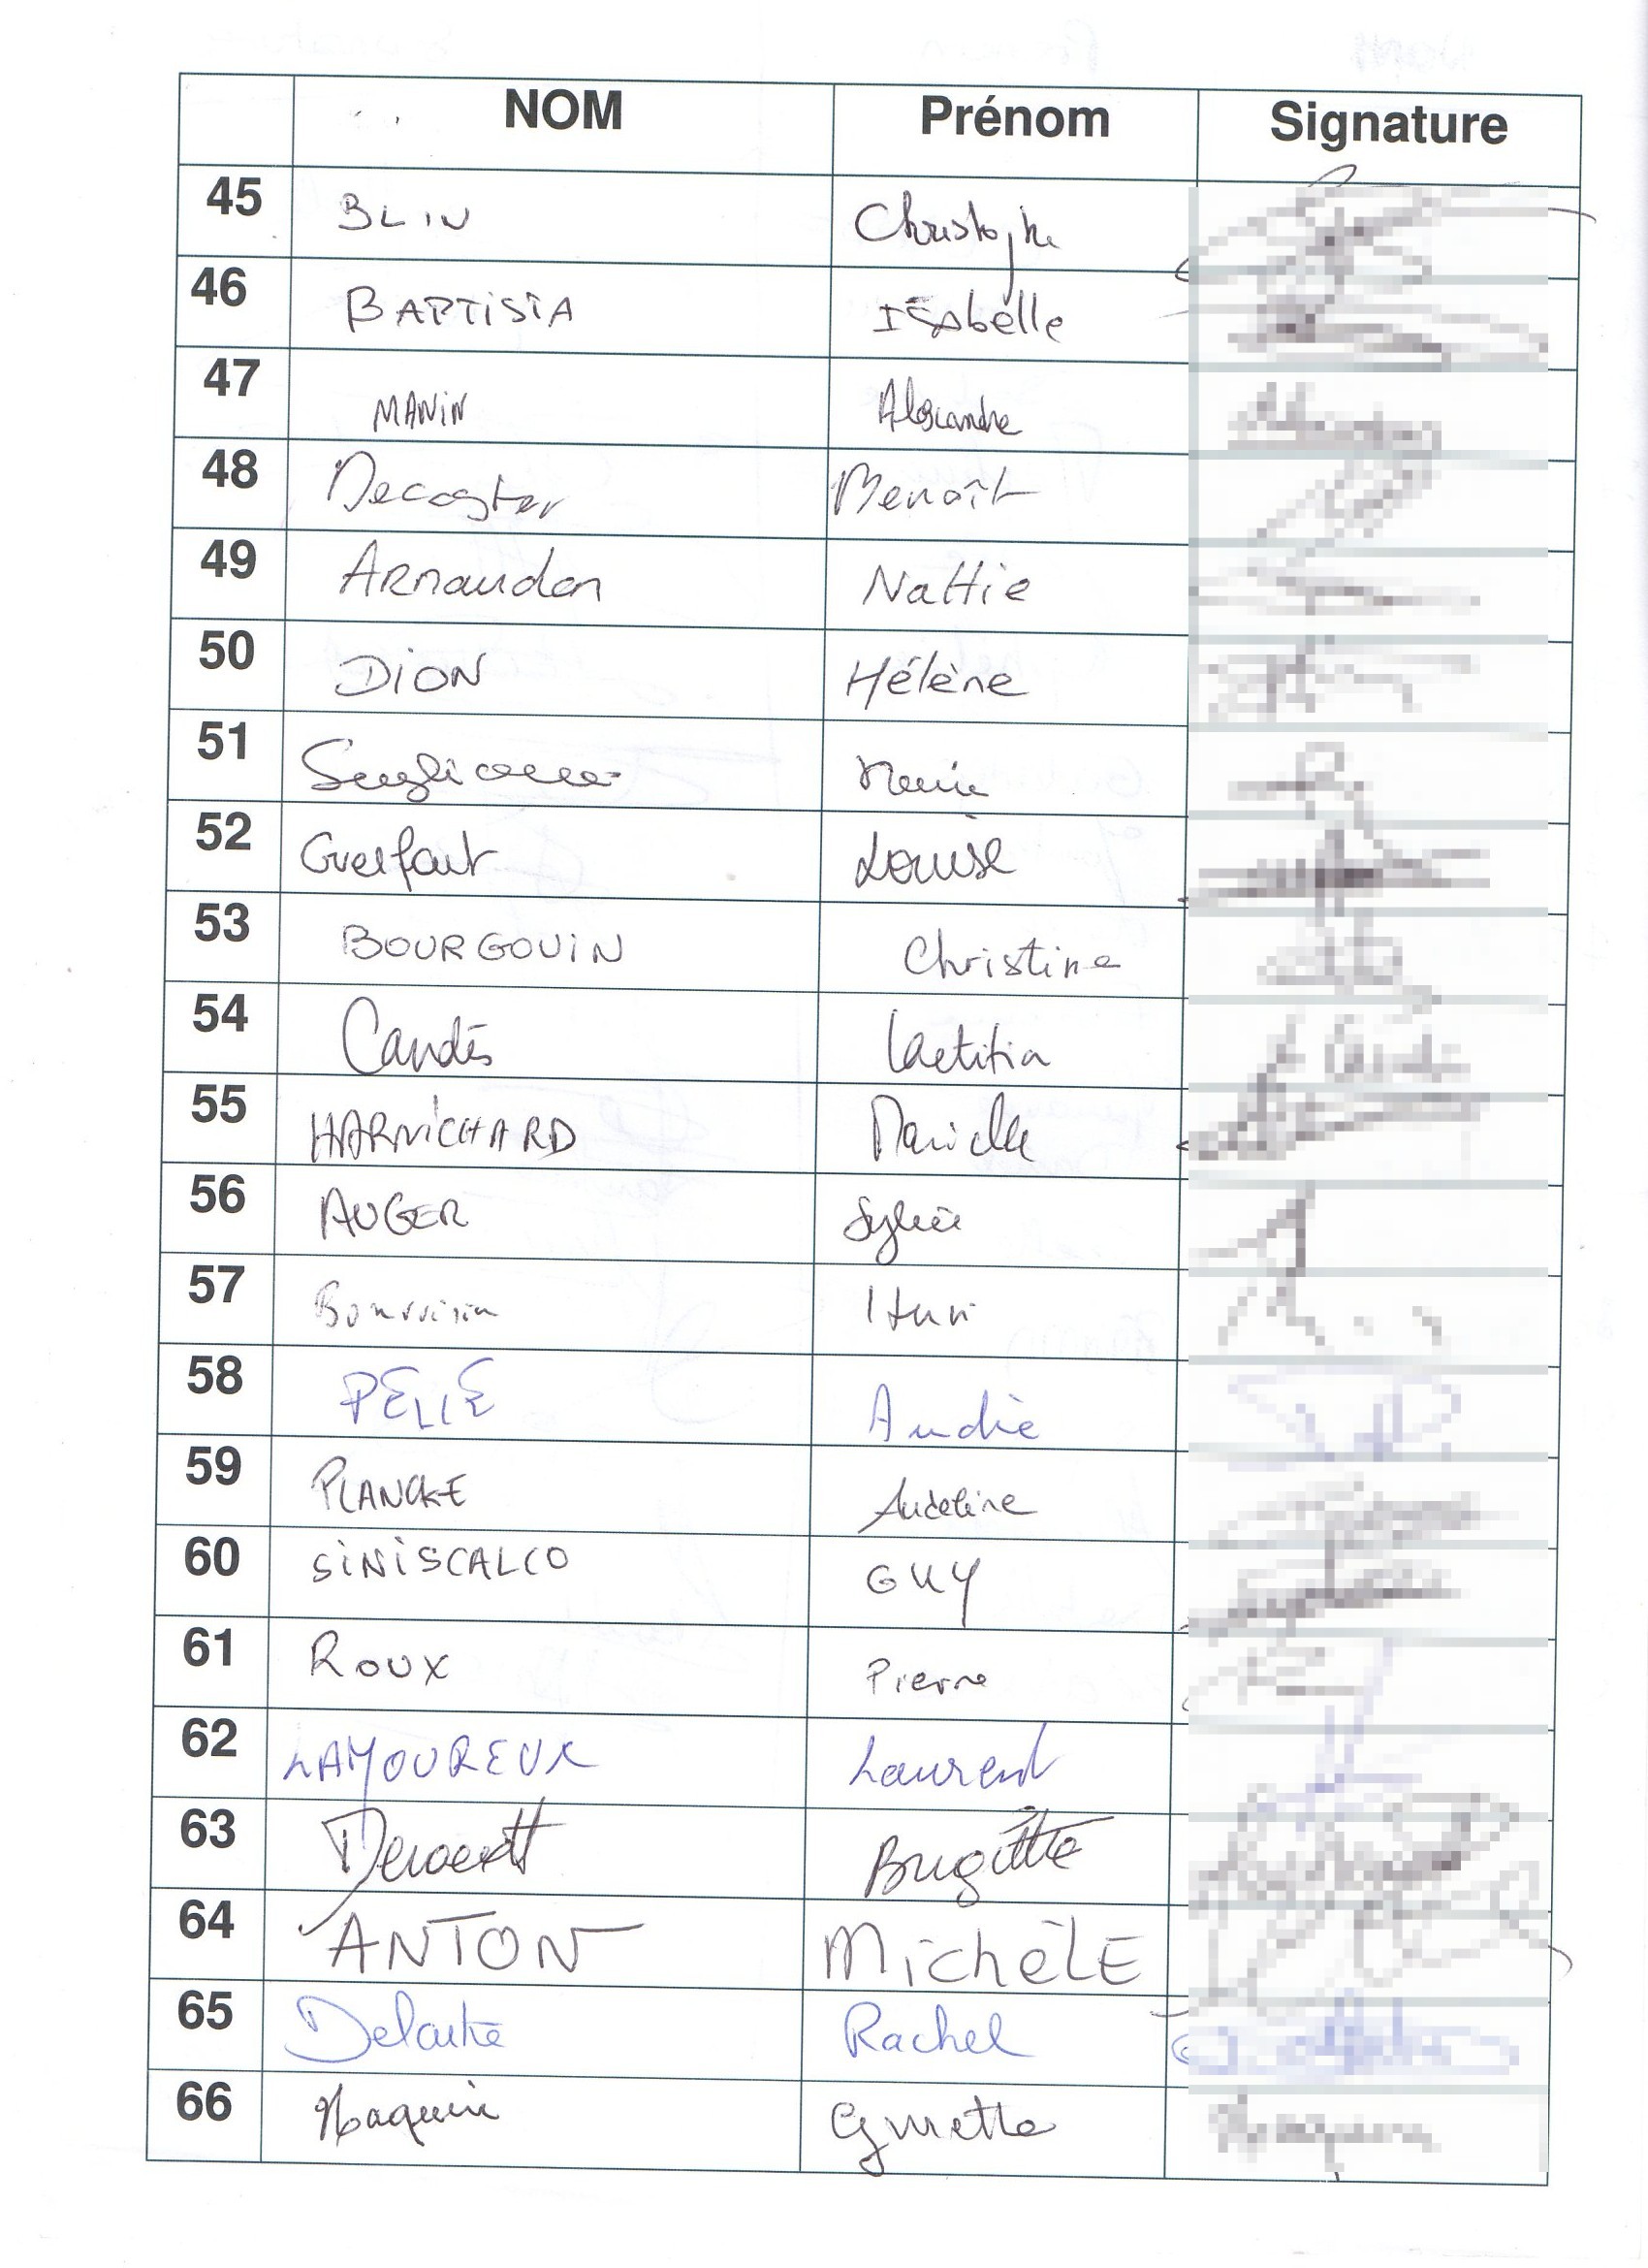 NOM Prénom Signature
45 BLIN Christophe
46 BAPTISTA ISabelle
47 MANIN Alexandre
48 Decoster Benoît
49 ARnaudon Nattie
50 DION Hélène
51
52 Louise
53 BOURGOUIN Christine
54 Candés Laetitia
55 HARNICHARD Marielle
56 AUGER Sylvie
57
58 PELLÉ André
59 PLANCKE Audeline
60 SINISCALCO GUY
61 ROUX Pierre
62 LAMOUREUX Laurent
63 Brigitte
64 ANTON MichèLE
65 Rachel
66 Naquin Ginette